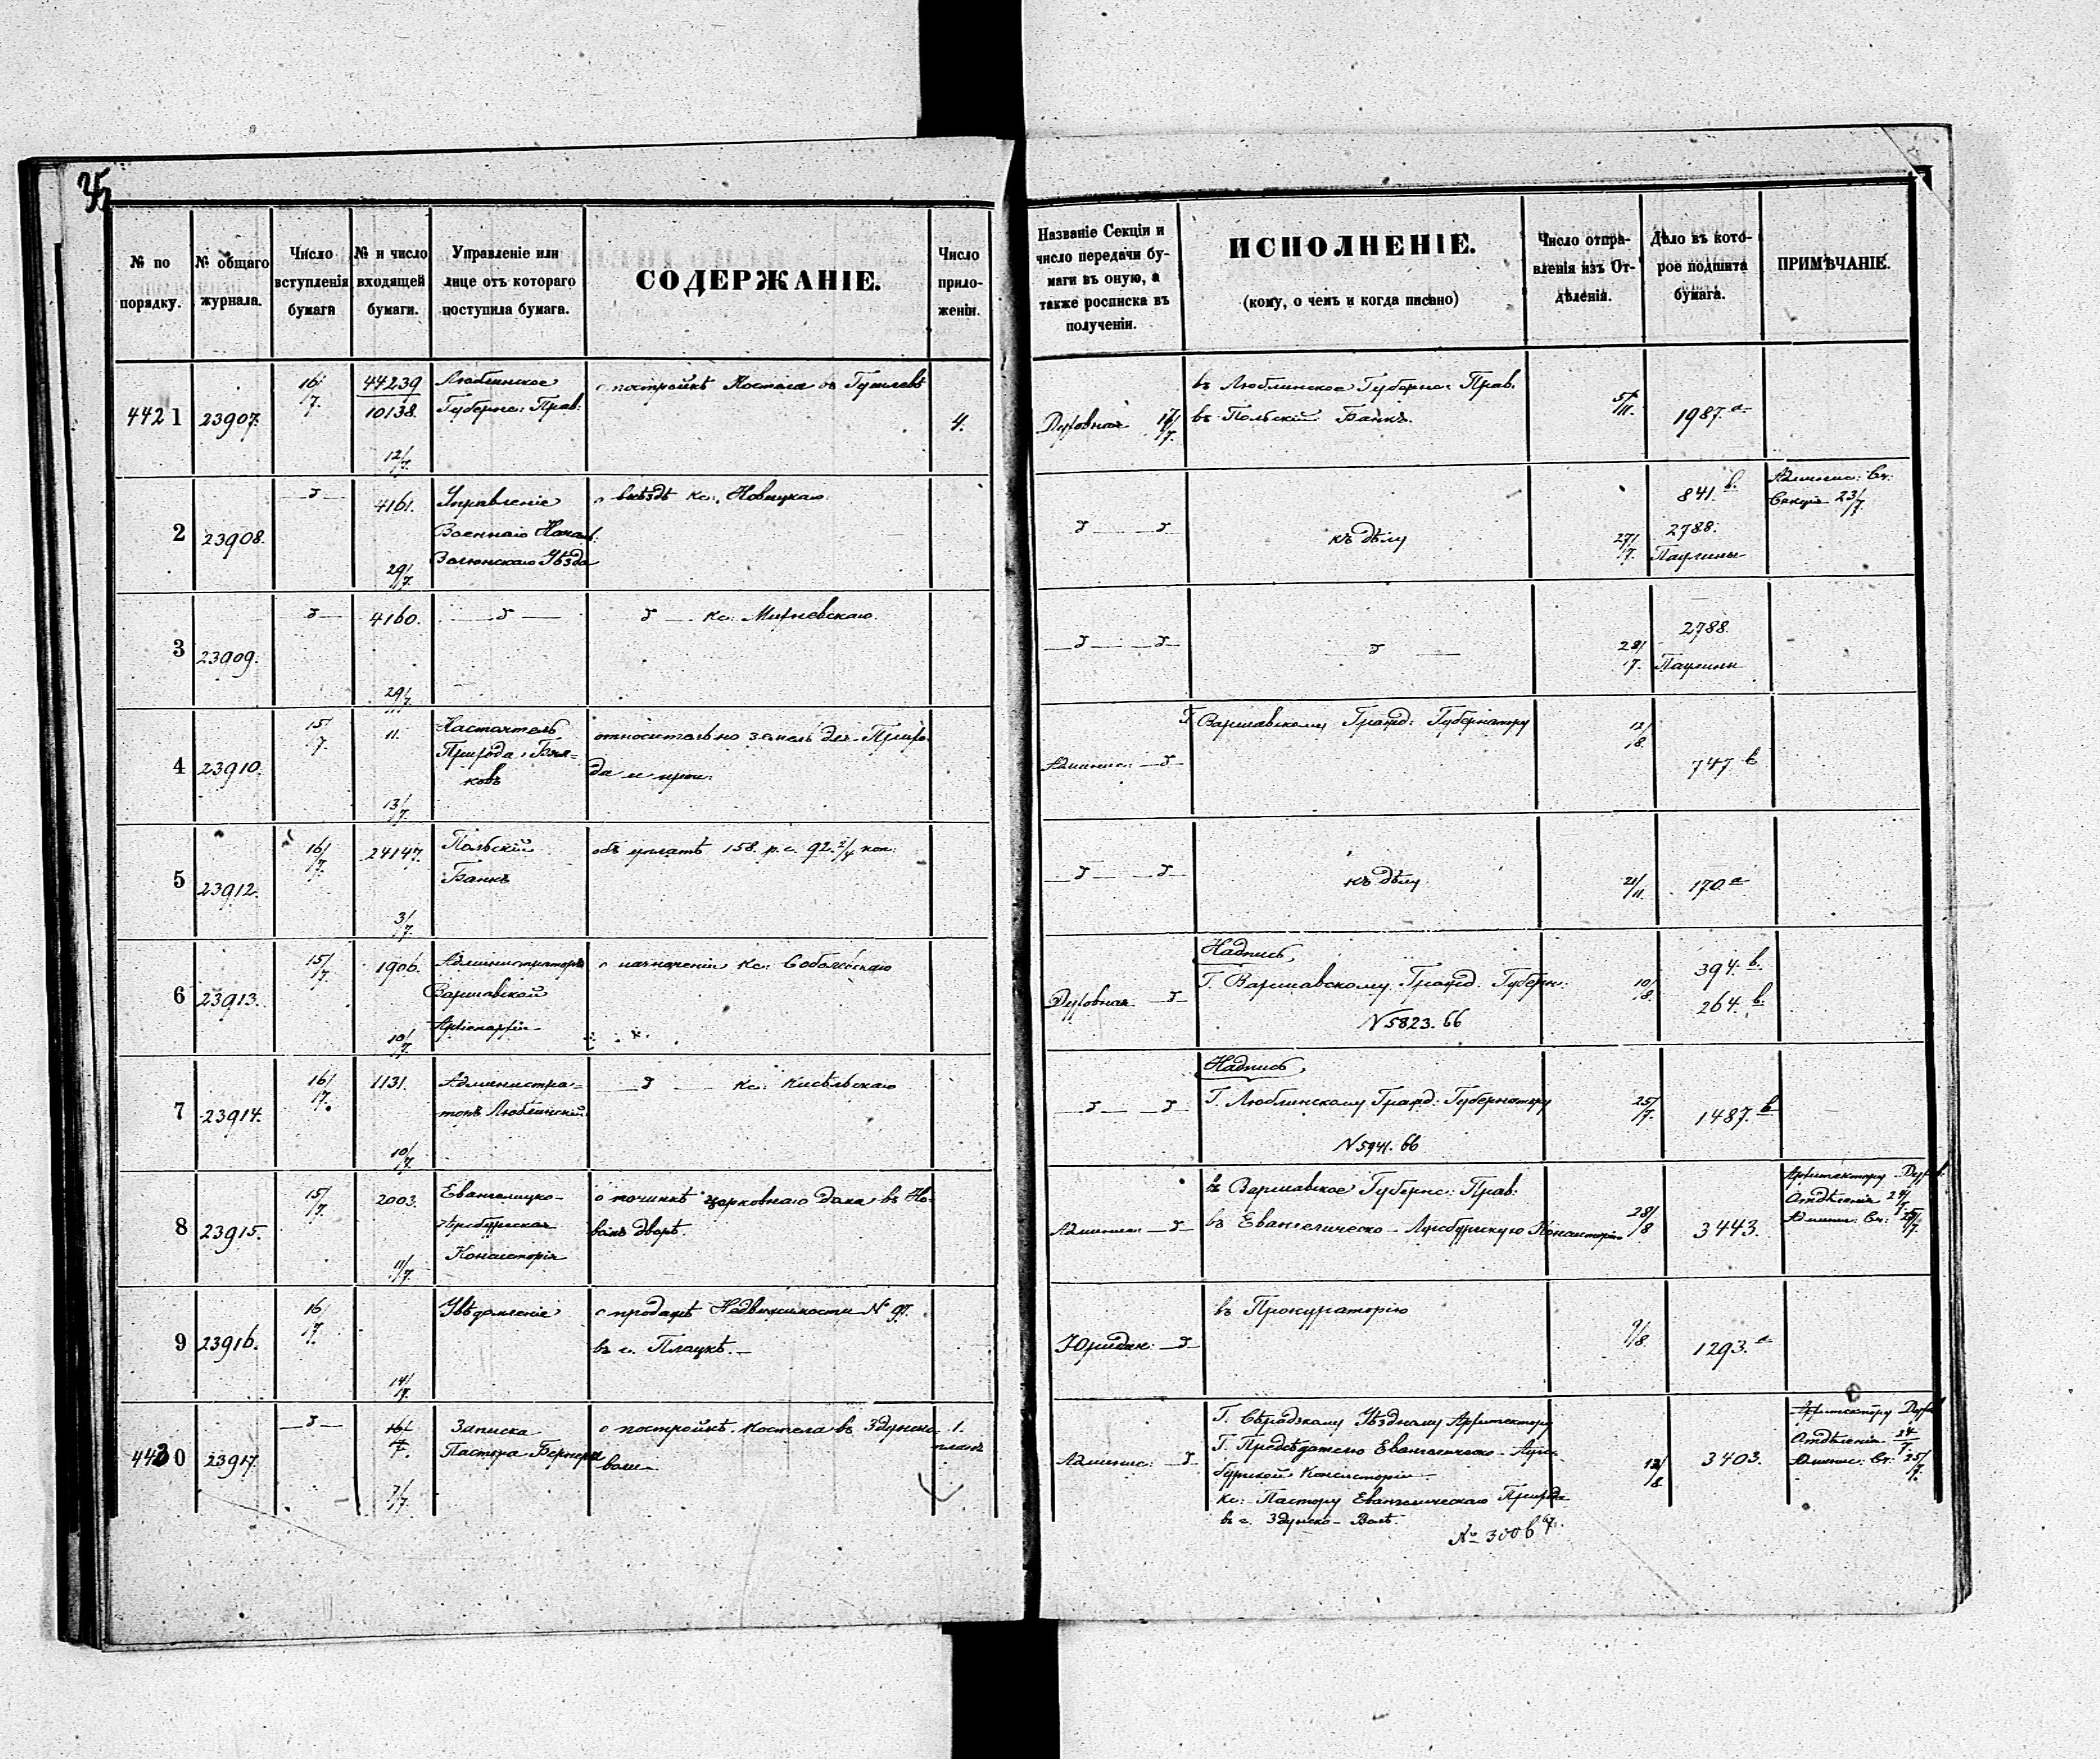 № по порядку.
№ общаго журнала.
Число вступленія бумаги
№ и число входящей бумаги.
Управленіе или лице отъ котораго поступила бумага.
СОДЕРЖАНІЕ.
Число приложеніи.
Названіе Секціи и число передачи бумаги въ оную, а также росписка въ полученіи.
ИСПОЛНЕНІЕ.
(кому, о чемъ и когда писано)
Число отправленія изъ Отдѣленія.
Дѣло въ которое подшита бумага.
ПРИМѢЧАНІЕ.
4421 23907. 16/7. 44239 10138. 12/7.
Люблинское
Губернс: Прав:
о постройкѣ Костела въ
4.
Духовная 17/7.
въ Люблинское Губернс: Прав.
въ Польскій Банкъ.
5/11. 1987. а
2 23908. 4161. 29/7.
Управленіе
Военнаго Начал:
Велюнскаго Уѣзда
о кс: Новицкаго
къ дѣлу
27/7. 841. в.
2788.
Паулины
Админис: Сч:
Секція 23/7.
3 23909. 4160. 29/7.
кс: Михневскаго
28/7. 2788.
Паулины
4 23910. 15/7 11. 13/7.
Настоятель
Прихода
ковъ
относительно земель для Прихо-
да и проч:
Админис:
Г. Варшавскому Гражд: Губернатору
12/8. 747. в
5 23912. 16/7. 24147. 3/7.
Польскій
Банкъ
объ уплатѣ 158. р. с. 92. коп:
къ дѣлу
21/11. 170. а
6 23913. 15/7. 1906. 10/7.
Администраторъ
Варшавской
Архіепархіи
о назначеніи кс: Соболевскаго
Духовная
Надпись
Г. Варшавскому Гражд. Губерн:
N 5823. 66
10/8. 394. в.
264. в.
7 23914. 16/7. 1131. 10/7.
Администра-
торъ Люблинскій
кс: Кисѣльскаго
Надпись
Г. Люблинскому Гражд: Губернатору
N 5941. 66
25/7. 1487. в
8 23915. 15/7. 2003. 11/7.
Евангелицко-
Аугсбургская
Консисторія
о починкѣ церковнаго дома въ Но-
вомъ дворѣ.
Админис:
въ Варшавское Губернс: Прав:
въ Евангелическо-Аугсбургскую Консисторію
28/8 3443.
Архитектору Духов.
Отдѣленія 24/7
Админ: Сч: 25/7.
9 23916. 16/7. 14/7.
Увѣдомленіе
о продажѣ Недвижимости N 97.
въ г. Плоцкѣ. —
Юридич:
въ Прокураторію
9/8. 1293. а
4430 23917. 7/7.
Записка
Пастора
о постройкѣ костела въ Здунско
воли
1. планъ
Админис:
Г. Сѣрадзкому Уѣздному Архитектору
Г. Предсѣдателю Евангелическо-Аугс-
бургской Консисторіи
кс: Пастору Евангелическаго Прихода
въ г. Здунско-Волѣ.
№ 3006 67.
12/8 3403.
Архитектору Духов
Отдѣленія 24/7
Админис: Сч: 25/7.